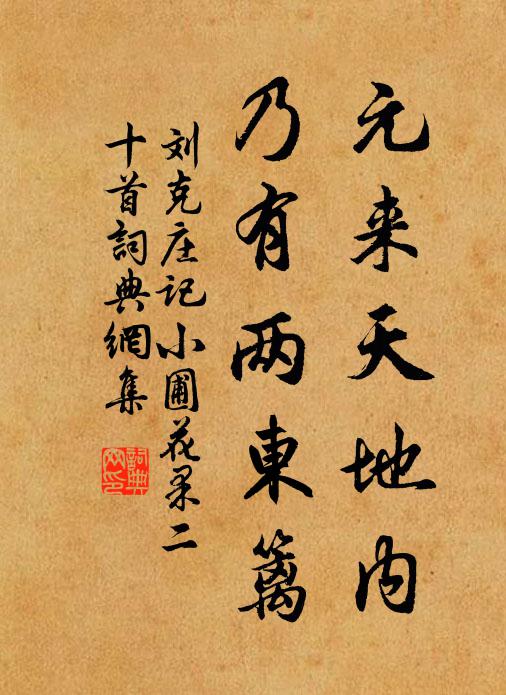 元来天地内
乃有两東篱
刘克庄记小圃花果二
十首詞典網集
詞典網印